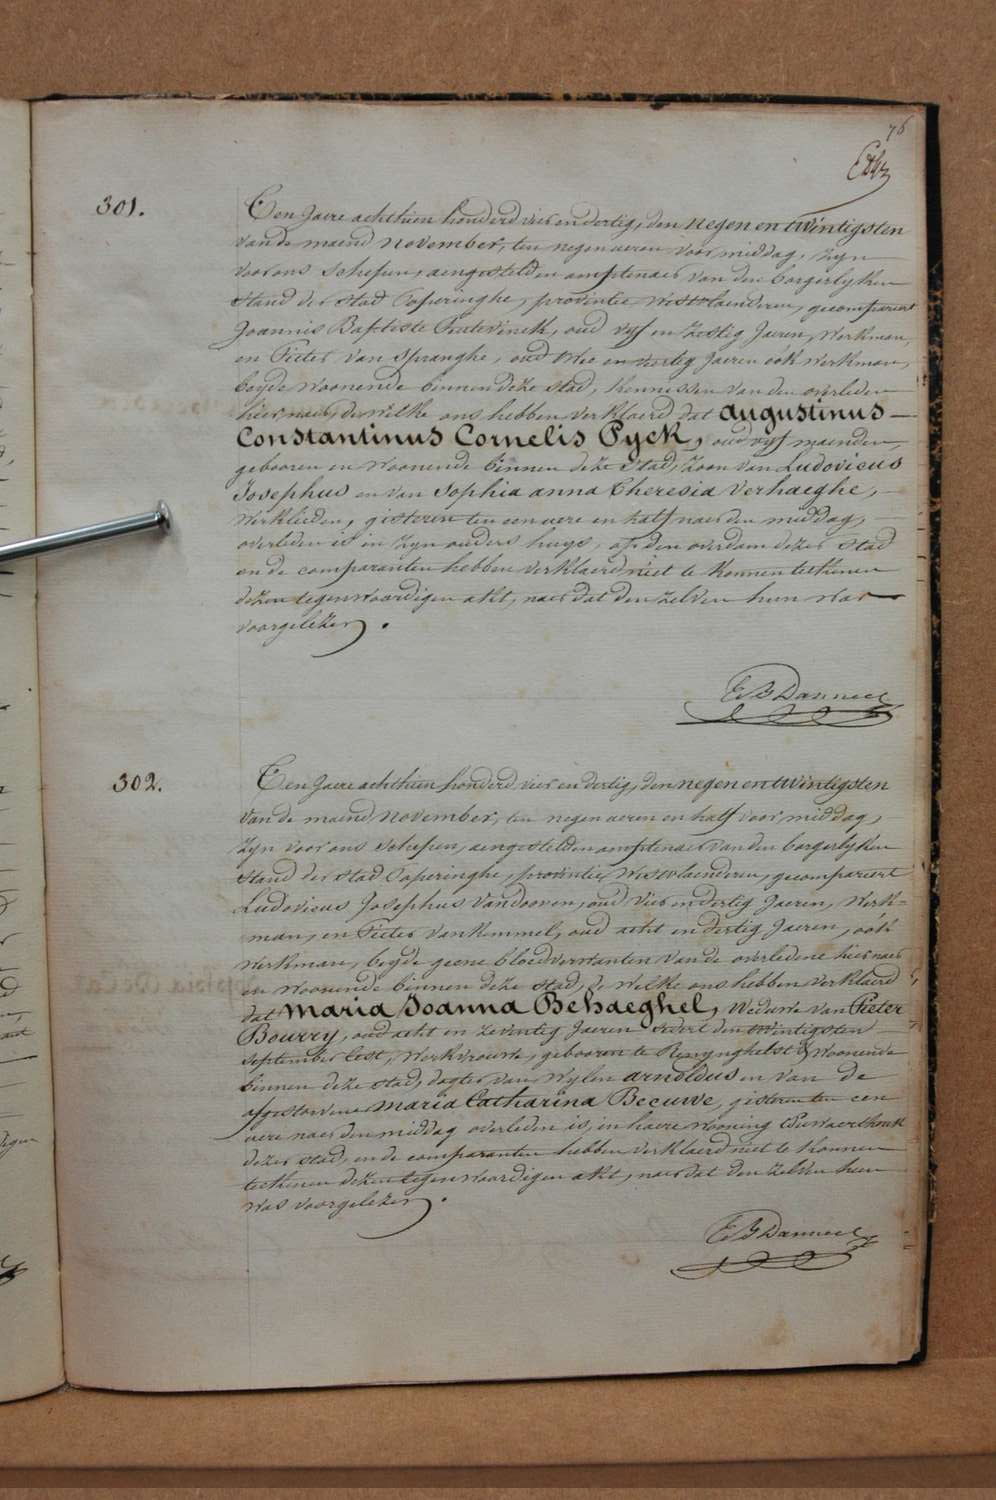 76
301.
Ten Jaere achthien honderd vier en dertig, den negen en twintigsten
van de maend november, ten negen aeren voor middag, zyn
voor ons schepen, aengestelden amptenaer van den borgerlyken
stand der stad Poperinghe, provintie westvlaenderen, gecompareert
Joannis Baptiste, oud vyf en zestig Jaeren, Werkman,
en Pieter van Spranghe, oud twee en veertig Jaeren ook werkman,
beyde woonende binnen deze stad, kennissen van den overleden
hier naer, de welke ons hebben verklaerd dat augustinus
Constantinus Cornelis Pyck, oud vyf maenden,
gebooren en woonende binnen deze stad, zoon van Ludovicus
Josephus en van Sophia anna Theresia Verhaeghe,
Werklieden, gisteren ten een aere en half naer den middag,
overleden is in zyn ouders huys, op den overdam dezer stad
en de comparanten hebben verklaerd niet te konnen teekenen
dezen tegenwoordigen akt, naer dat den zelven hun was
voorgelezen.
E B Danneel
302.
Ten Jaere achthien honderd vier en dertig, den negen en twintigsten
van de maend november, ten negen aeren en half voor middag,
zyn voor ons schepen, aengestelden amptenaer van den borgerlyken
stand der stad Poperinghe, provintie Westvlaenderen, gecompareert
Ludovicus Josephus Vandooven, oud Vier en dertig Jaeren, Werk-
man, en Pieter Van Kemmel, oud acht en dertig Jaeren, ook
werkman, beyde geene bloedverwanten van de overledene hier naer
en woonende binnen deze stad, de welke ons hebben verklaerd
dat Maria Joanna Behaeghel, Weduwe van Pieter
Bourry, oud acht en zeventig Jaeren sedert den twintigsten
september lest, Werkvrouwe, gebooren te Renynghelst & woonende
binnen deze stad, dogter van wylen arnoldus en van de
afgestorvene maria Catharina Beeuwe, gisteren ten een
aere naer den middag overleden is, in haere wooning
dezer stad, en de comparanten hebben verklaerd niet te konnen
teekenen dezen tegenwoordigen akt, naer dat den zelven hun
was voorgelezen.
E B Danneel